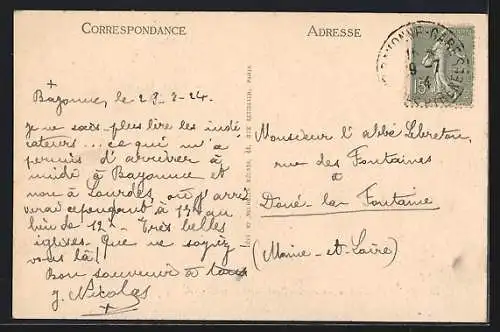 CORRESPONDANCE
ADRESSE
Bayonne, le 28-2-24.
Je ne sais plus lire les indi-
cateurs... ce qui m'a
permis d'arriver à
midi à Bayonne et
non à Lourdes où j'arri-
verai cependant à
lieu de 12h. Très belles
églises. Que ne soyiez-
vous là!
Bon souvenir à tous
J. Nicolas
Monsieur l'abbé Lebreton,
rue des Fontaines
à
Doué-la-Fontaine
(Maine-et-Loire)
BAYONNE-GARE